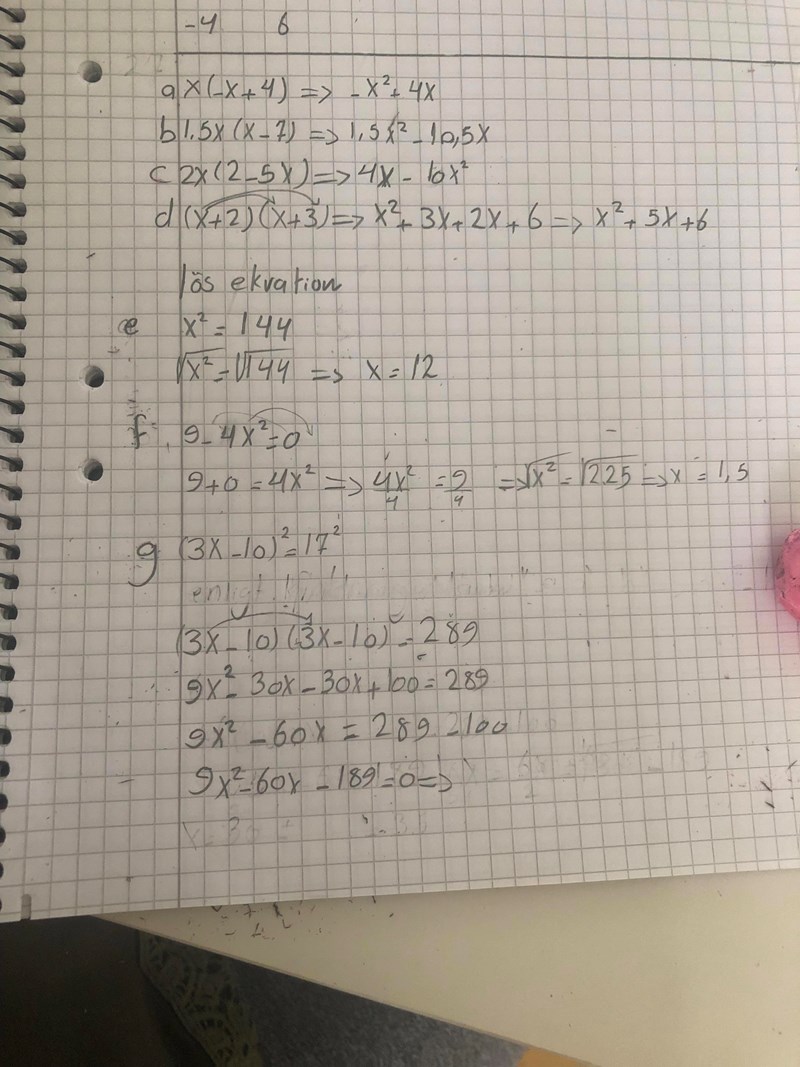 -4 6
a x(-x+4) => -x²+4x
b 1,5x(x-7) => 1,5x²-10,5x
c 2x(2-5x) => 4x-10x²
d (x+2)(x+3) => x²+3x+2x+6 => x²+5x+6
lös ekvation
e x²=144
√x²=√144 => x=12
f 9-4x²=0
9+0=4x² => 4x²/4 = 9/4 => √x²=√225 => x=1,5
g (3x-10)²=17²
enligt
(3x-10)(3x-10)=289
9x²-30x-30x+100=289
9x²-60x=289-100
9x²-60x-189=0=>